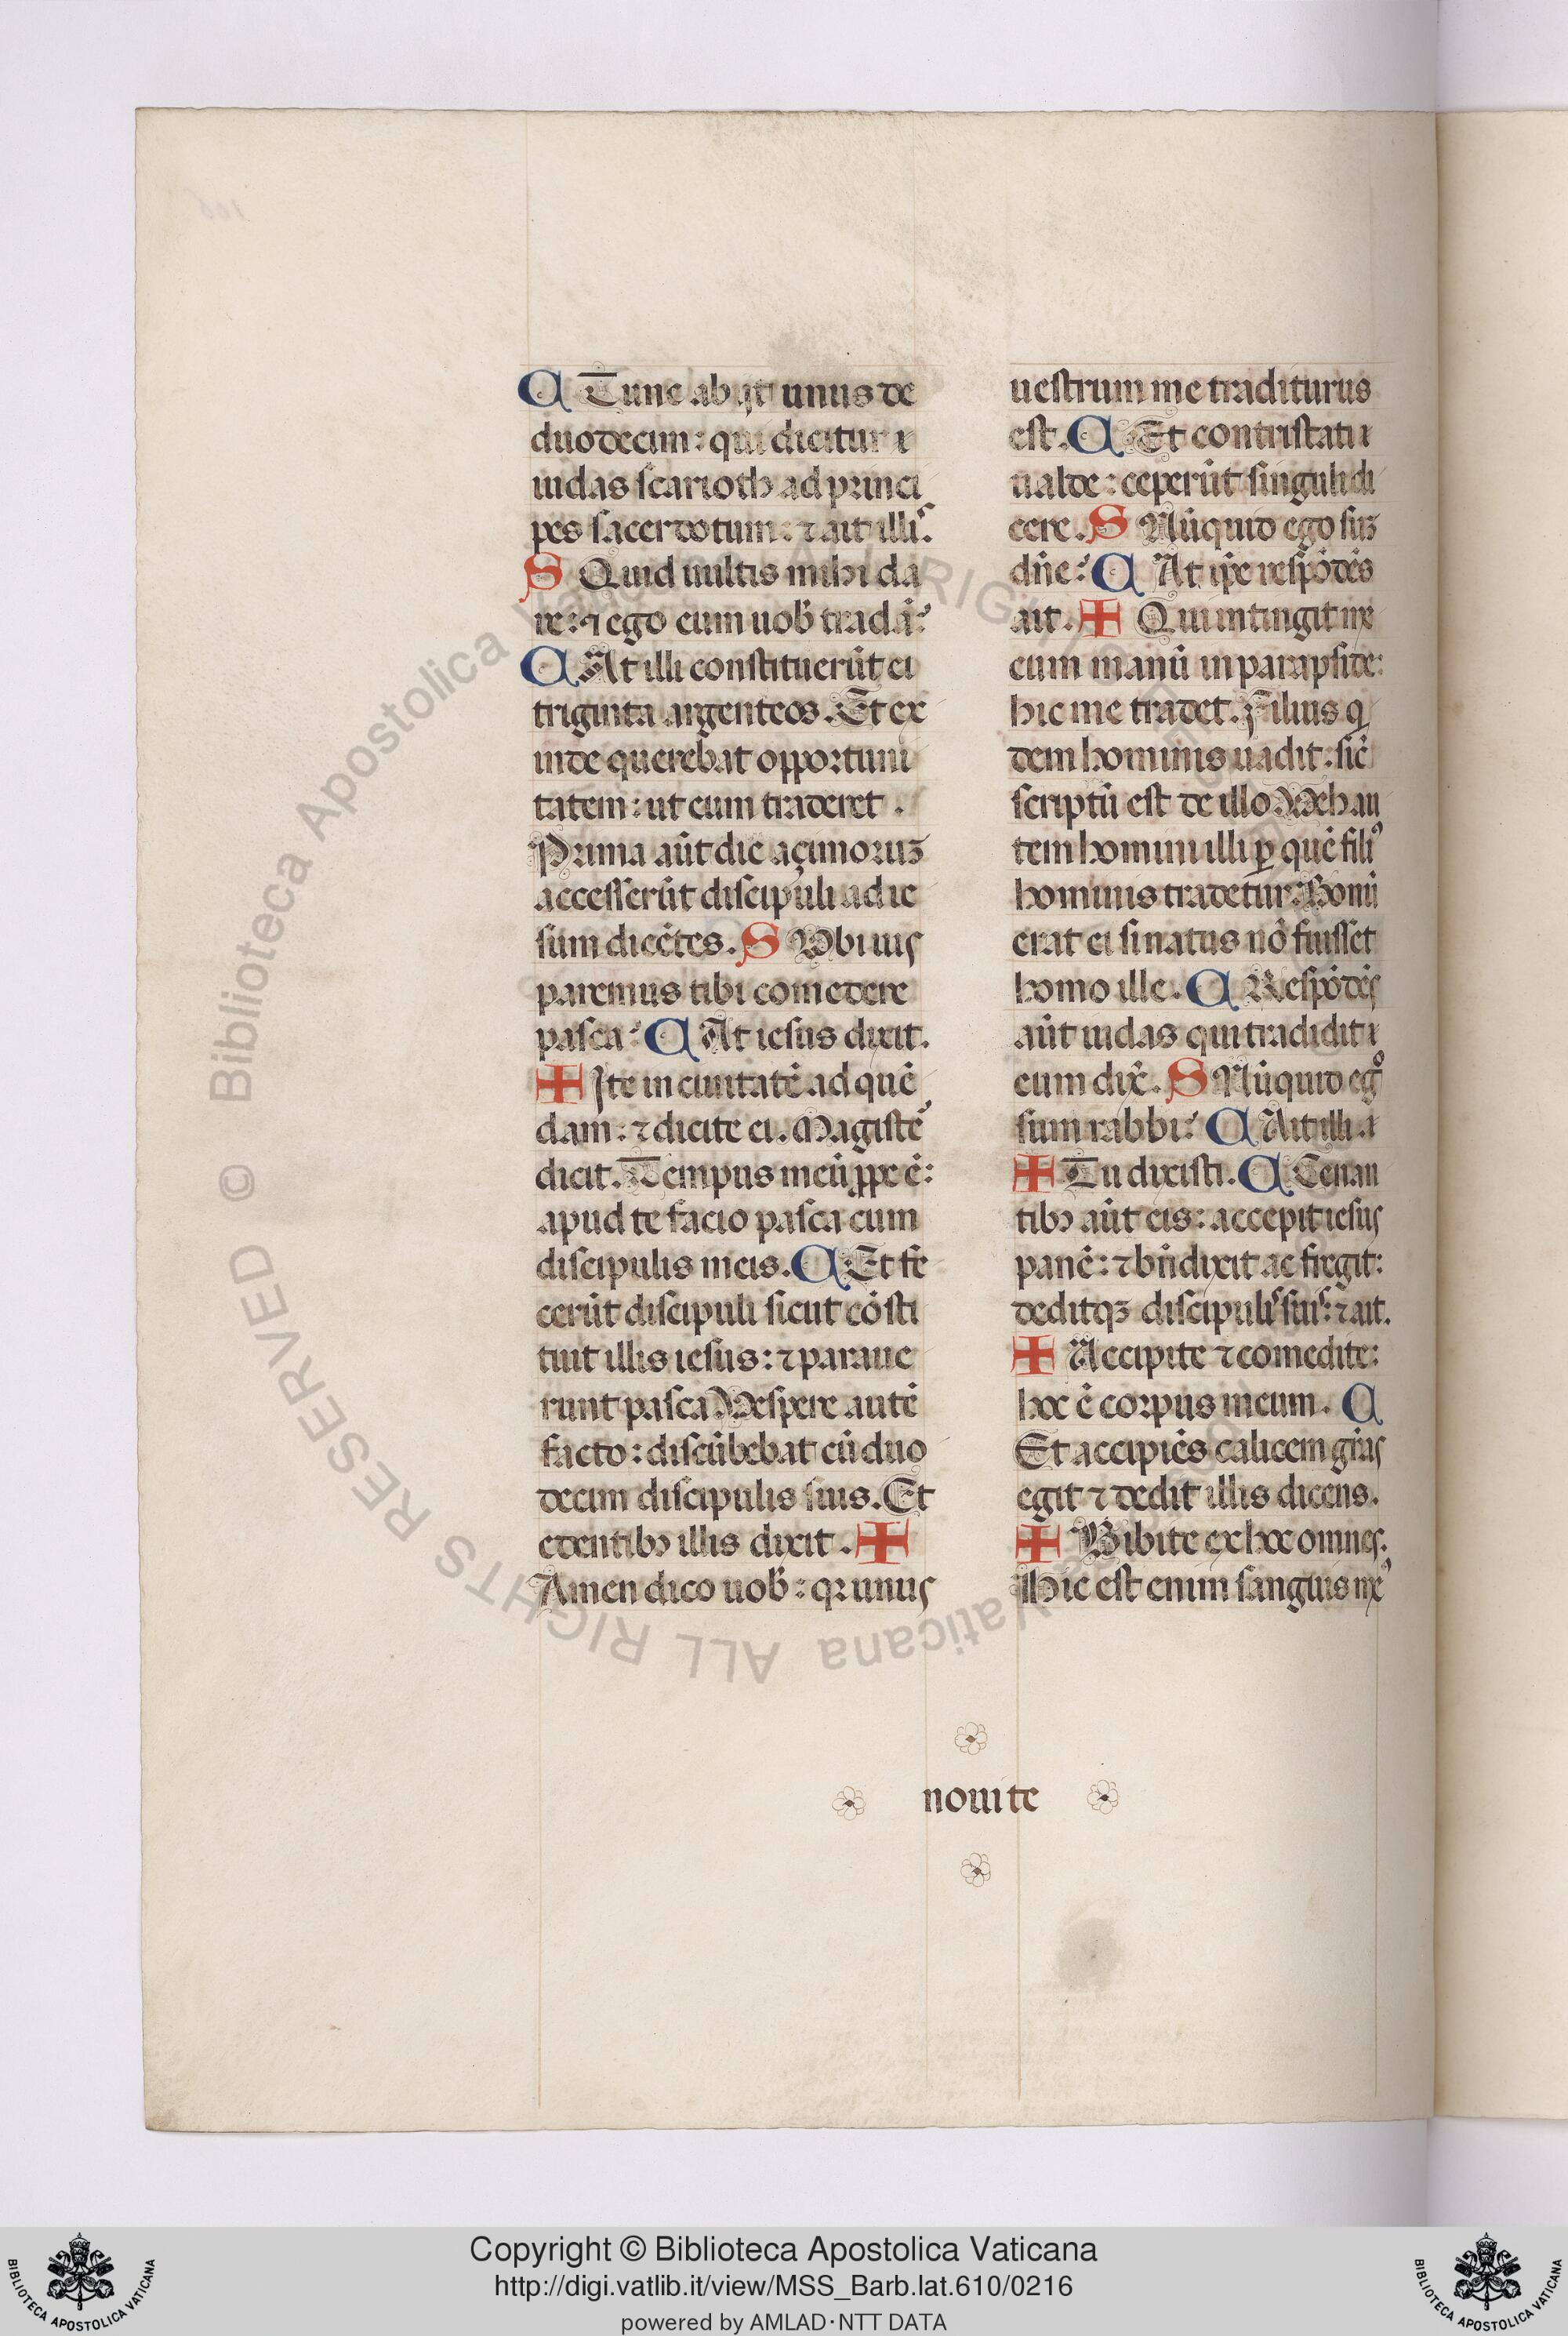 C Tunc abijt unus de
duodecim: qui dicitur
iudas scarioth ad princi
pes sacerdotum: ⁊ ait illis.
S Quid uultis mihi da
re: ⁊ ego eum uob̄ tradā?
C At illi constituerūt ei
triginta argenteos. Et ex
inde querebat opportuni
tatem: ut eum traderet.
Prima aūt die açimoruꝫ
accesserūt discipuli ad ie
sum dicētes. S Vbi uis
paremus tibi comedere
pasca? C At iesus dixit.
✠ Ite in ciuitatē ad quē
dam: ⁊ dicite ei. Magister
dicit. Tempus meū ꝓpe ē:
apud te facio pasca cum
discipulis meis. C Et fe
cerūt discipuli sicut cōsti
tuit illis iesus: ⁊ paraue
runt pasca. Vespere autē
facto: discūbebat cū duo
decim discipulis suis. Et
edentibꝫ illis dixit. ✠
Amen dico uob̄: qꝛ unus
uestrum me traditurus
est. C Et contristati
ualde: ceperūt singuli di
cere. S Nūquid ego suꝫ
dn̄e? C At ip̄e respōdēs
ait. ✠ Qui intingit me
cum manū in parapside:
hic me tradet. Filius q
dem hominis uadit: sic̄
scriptū est de illo. Veh au
tem homini illi ꝑ quē filiꝰ
hominis tradetur. Bonū
erat ei si natus nō fuisset
homo ille. C Respōdēs
aūt iudas qui tradidit
eum dix̄. S Nūquid ego
sum rabbi? C Ait illi
✠ Tu dixisti. C Cenan
tibꝫ aūt eis: accepit iesus
panē: ⁊ bn̄dixit ac fregit:
deditqꝫ discipulis suis: ⁊ ait.
✠ Accipite ⁊ comedite:
hoc ē corpus meum. C
Et accipiēs calicem gr̄as
egit ⁊ dedit illis dicens.
✠ Bibite ex hoc omnes.
Hic est enim sanguis meꝰ
noui te
© Biblioteca Apostolica Vaticana ALL RIGHTS RESERVED
Copyright © Biblioteca Apostolica Vaticana
http://digi.vatlib.it/view/MSS_Barb.lat.610/0216
powered by AMLAD·NTT DATA
BIBLIOTECA APOSTOLICA VATICANA
BIBLIOTECA APOSTOLICA VATICANA